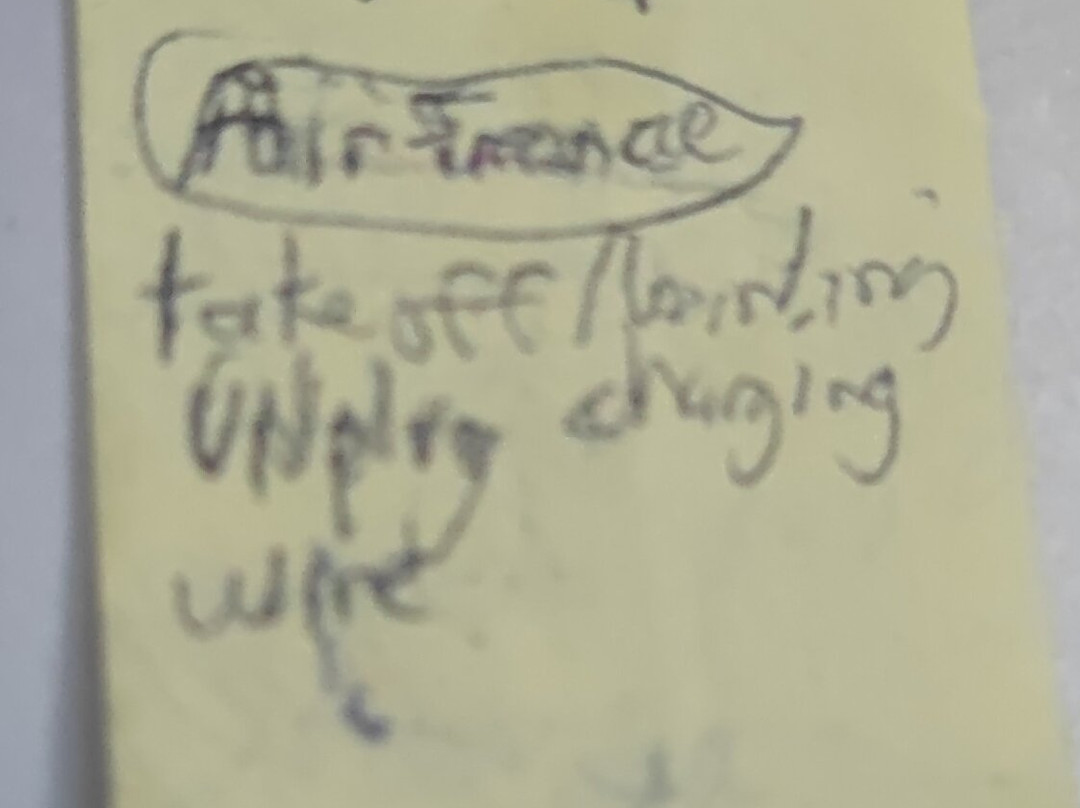 Air France
take off/landing
UNplug charging
wire